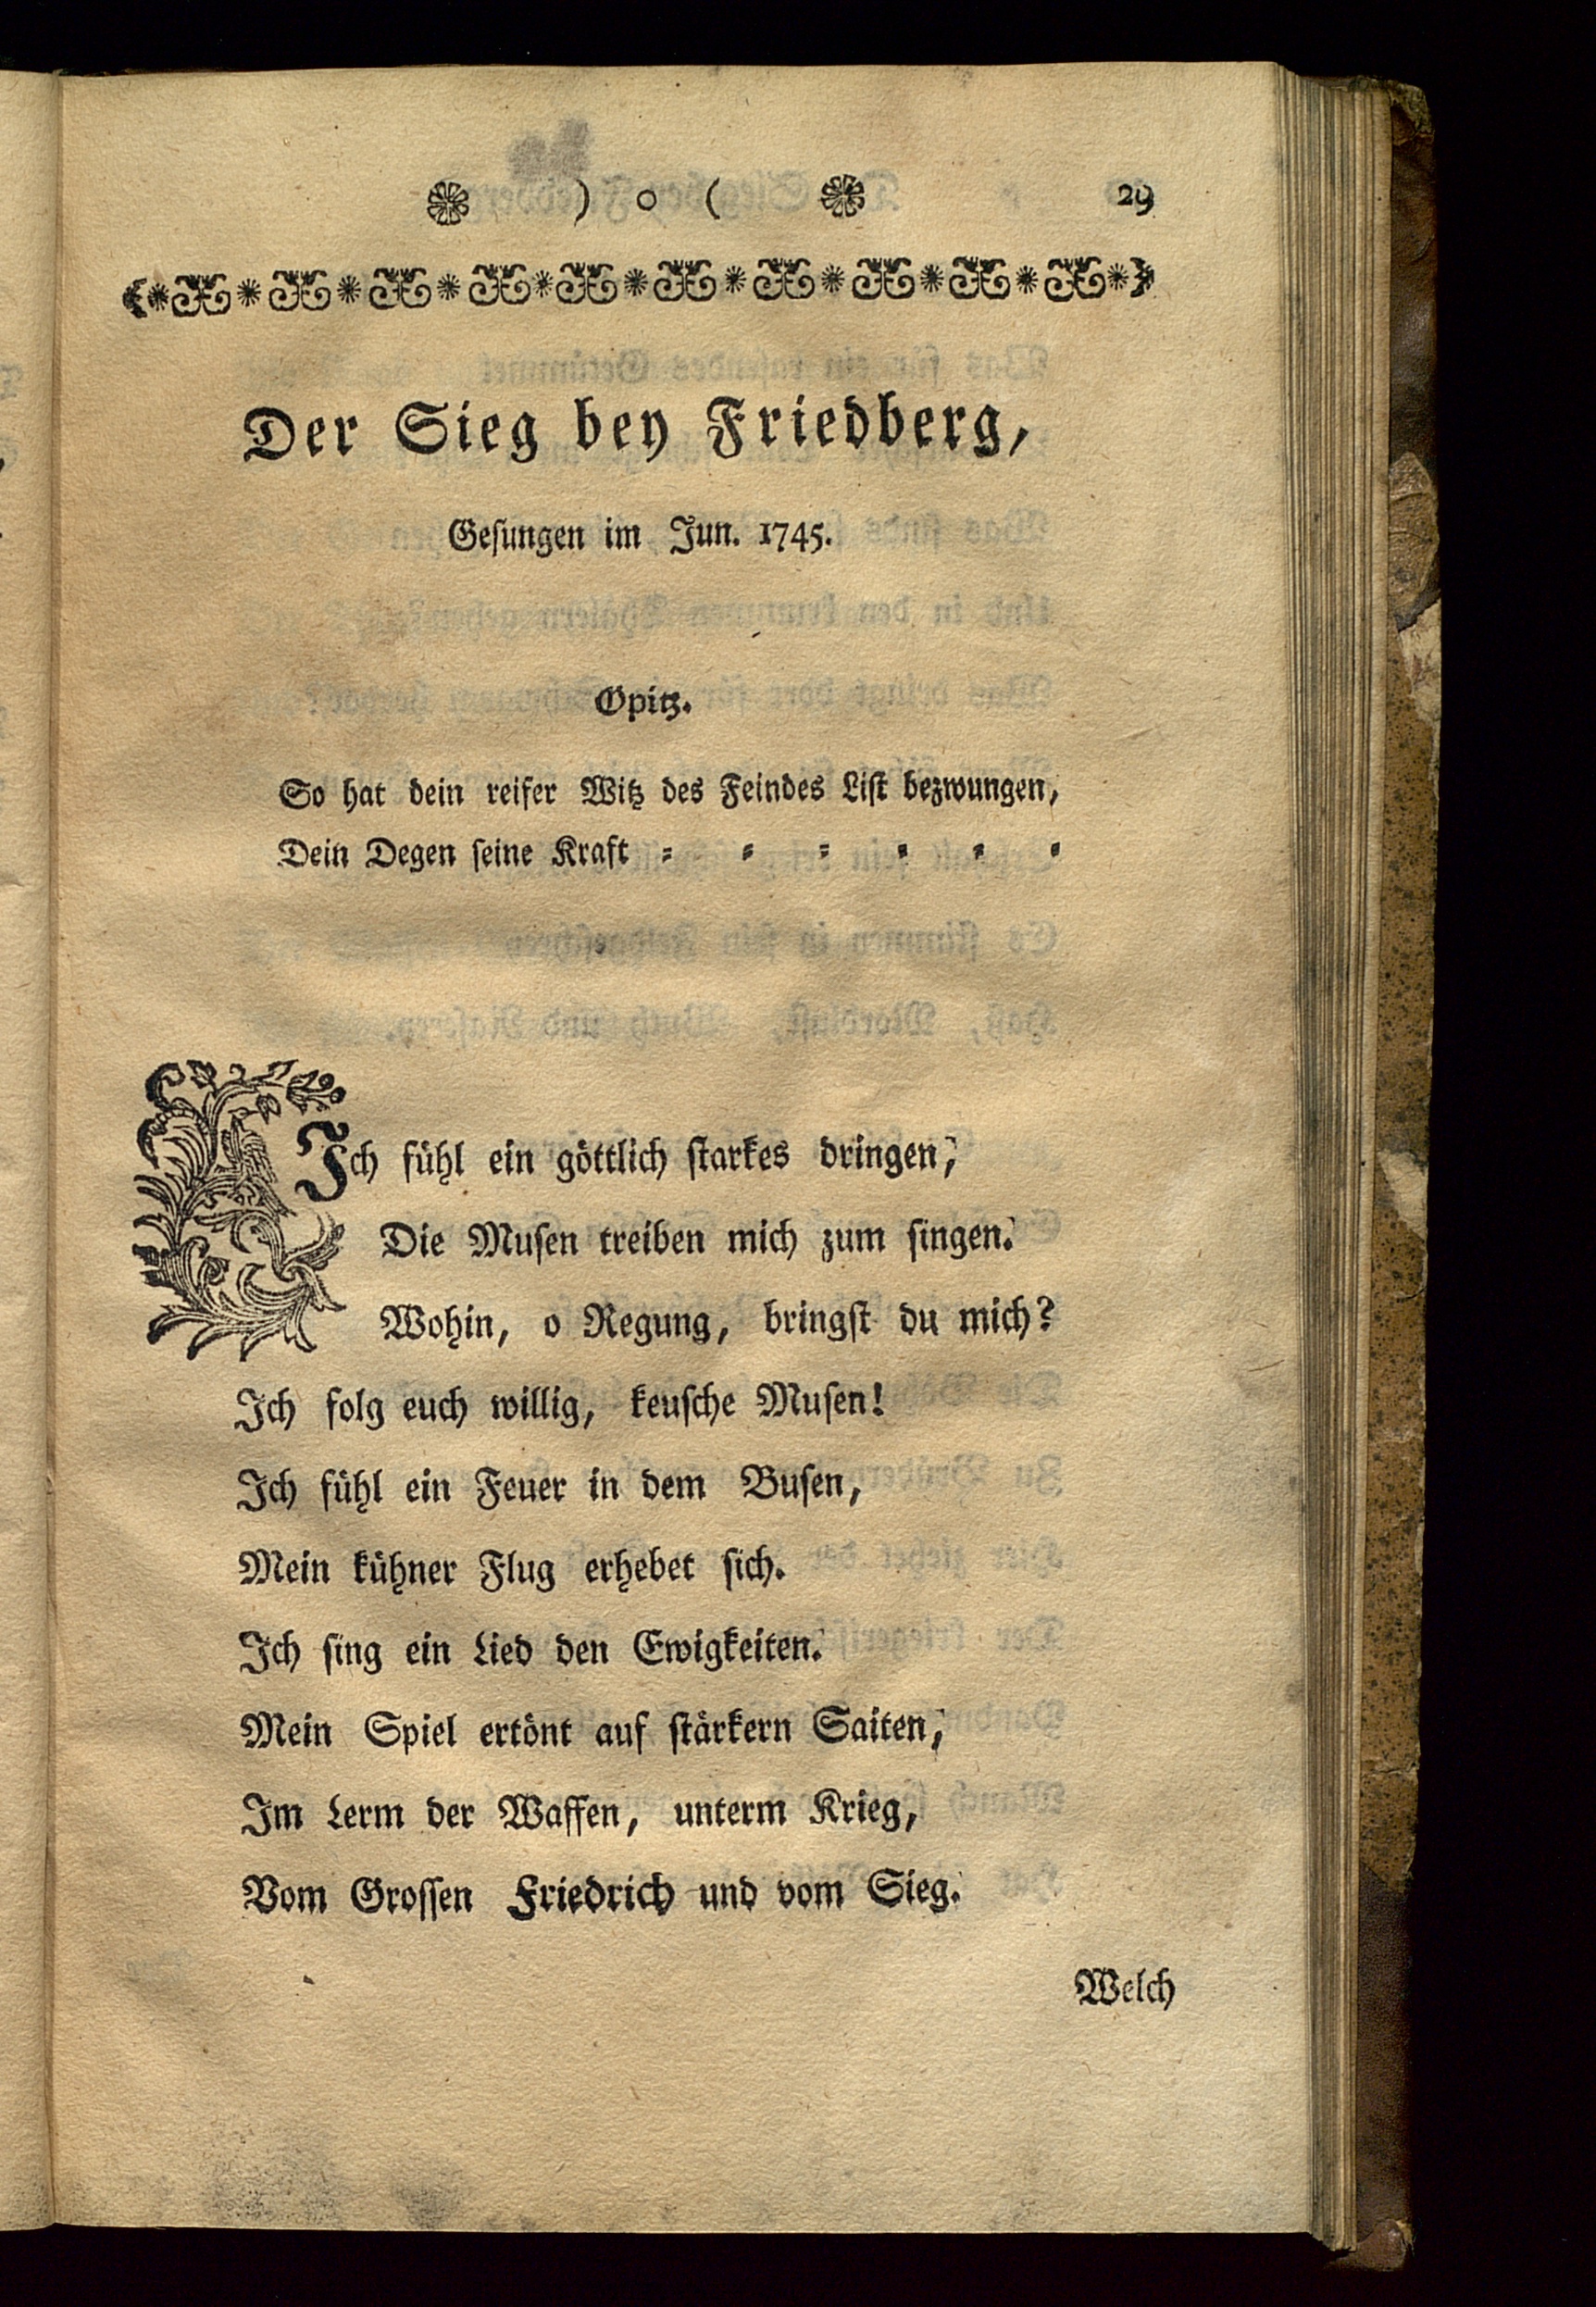 ) o ( 29
Der Sieg bey Friedberg,
Gesungen im Jun. 1745.
Opitz.
So hat dein reifer Witz des Feindes List bezwungen,
Dein Degen seine Kraft = = = = = =
Ich fühl ein göttlich starkes dringen,
Die Musen treiben mich zum singen.
Wohin, o Regung, bringst du mich?
Ich folg euch willig, keusche Musen!
Ich fühl ein Feuer in dem Busen,
Mein kühner Flug erhebet sich.
Ich sing ein Lied den Ewigkeiten.
Mein Spiel ertönt auf stärkern Saiten,
Im Lerm der Waffen, unterm Krieg,
Vom Grossen Friedrich und vom Sieg.
Welch